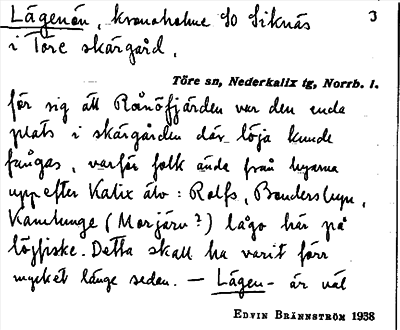 Lägenön, kronoholme SO Siknäs 3
i Töre skärgård.
Töre sn, Nederkalix tg, Norrb. l.
för sig att Rånöfjärden var den enda
plats i skärgården där löja kunde
fångas, varför folk ända från byarna
upp efter Kalix älv: Rolfs, Bondersbyn,
Kamlunge (Morjärv?) lågo här på
löjfiske. Detta skall ha varit förr
mycket länge sedan. — Lägen- är väl
EDVIN BRÄNNSTRÖM 1938